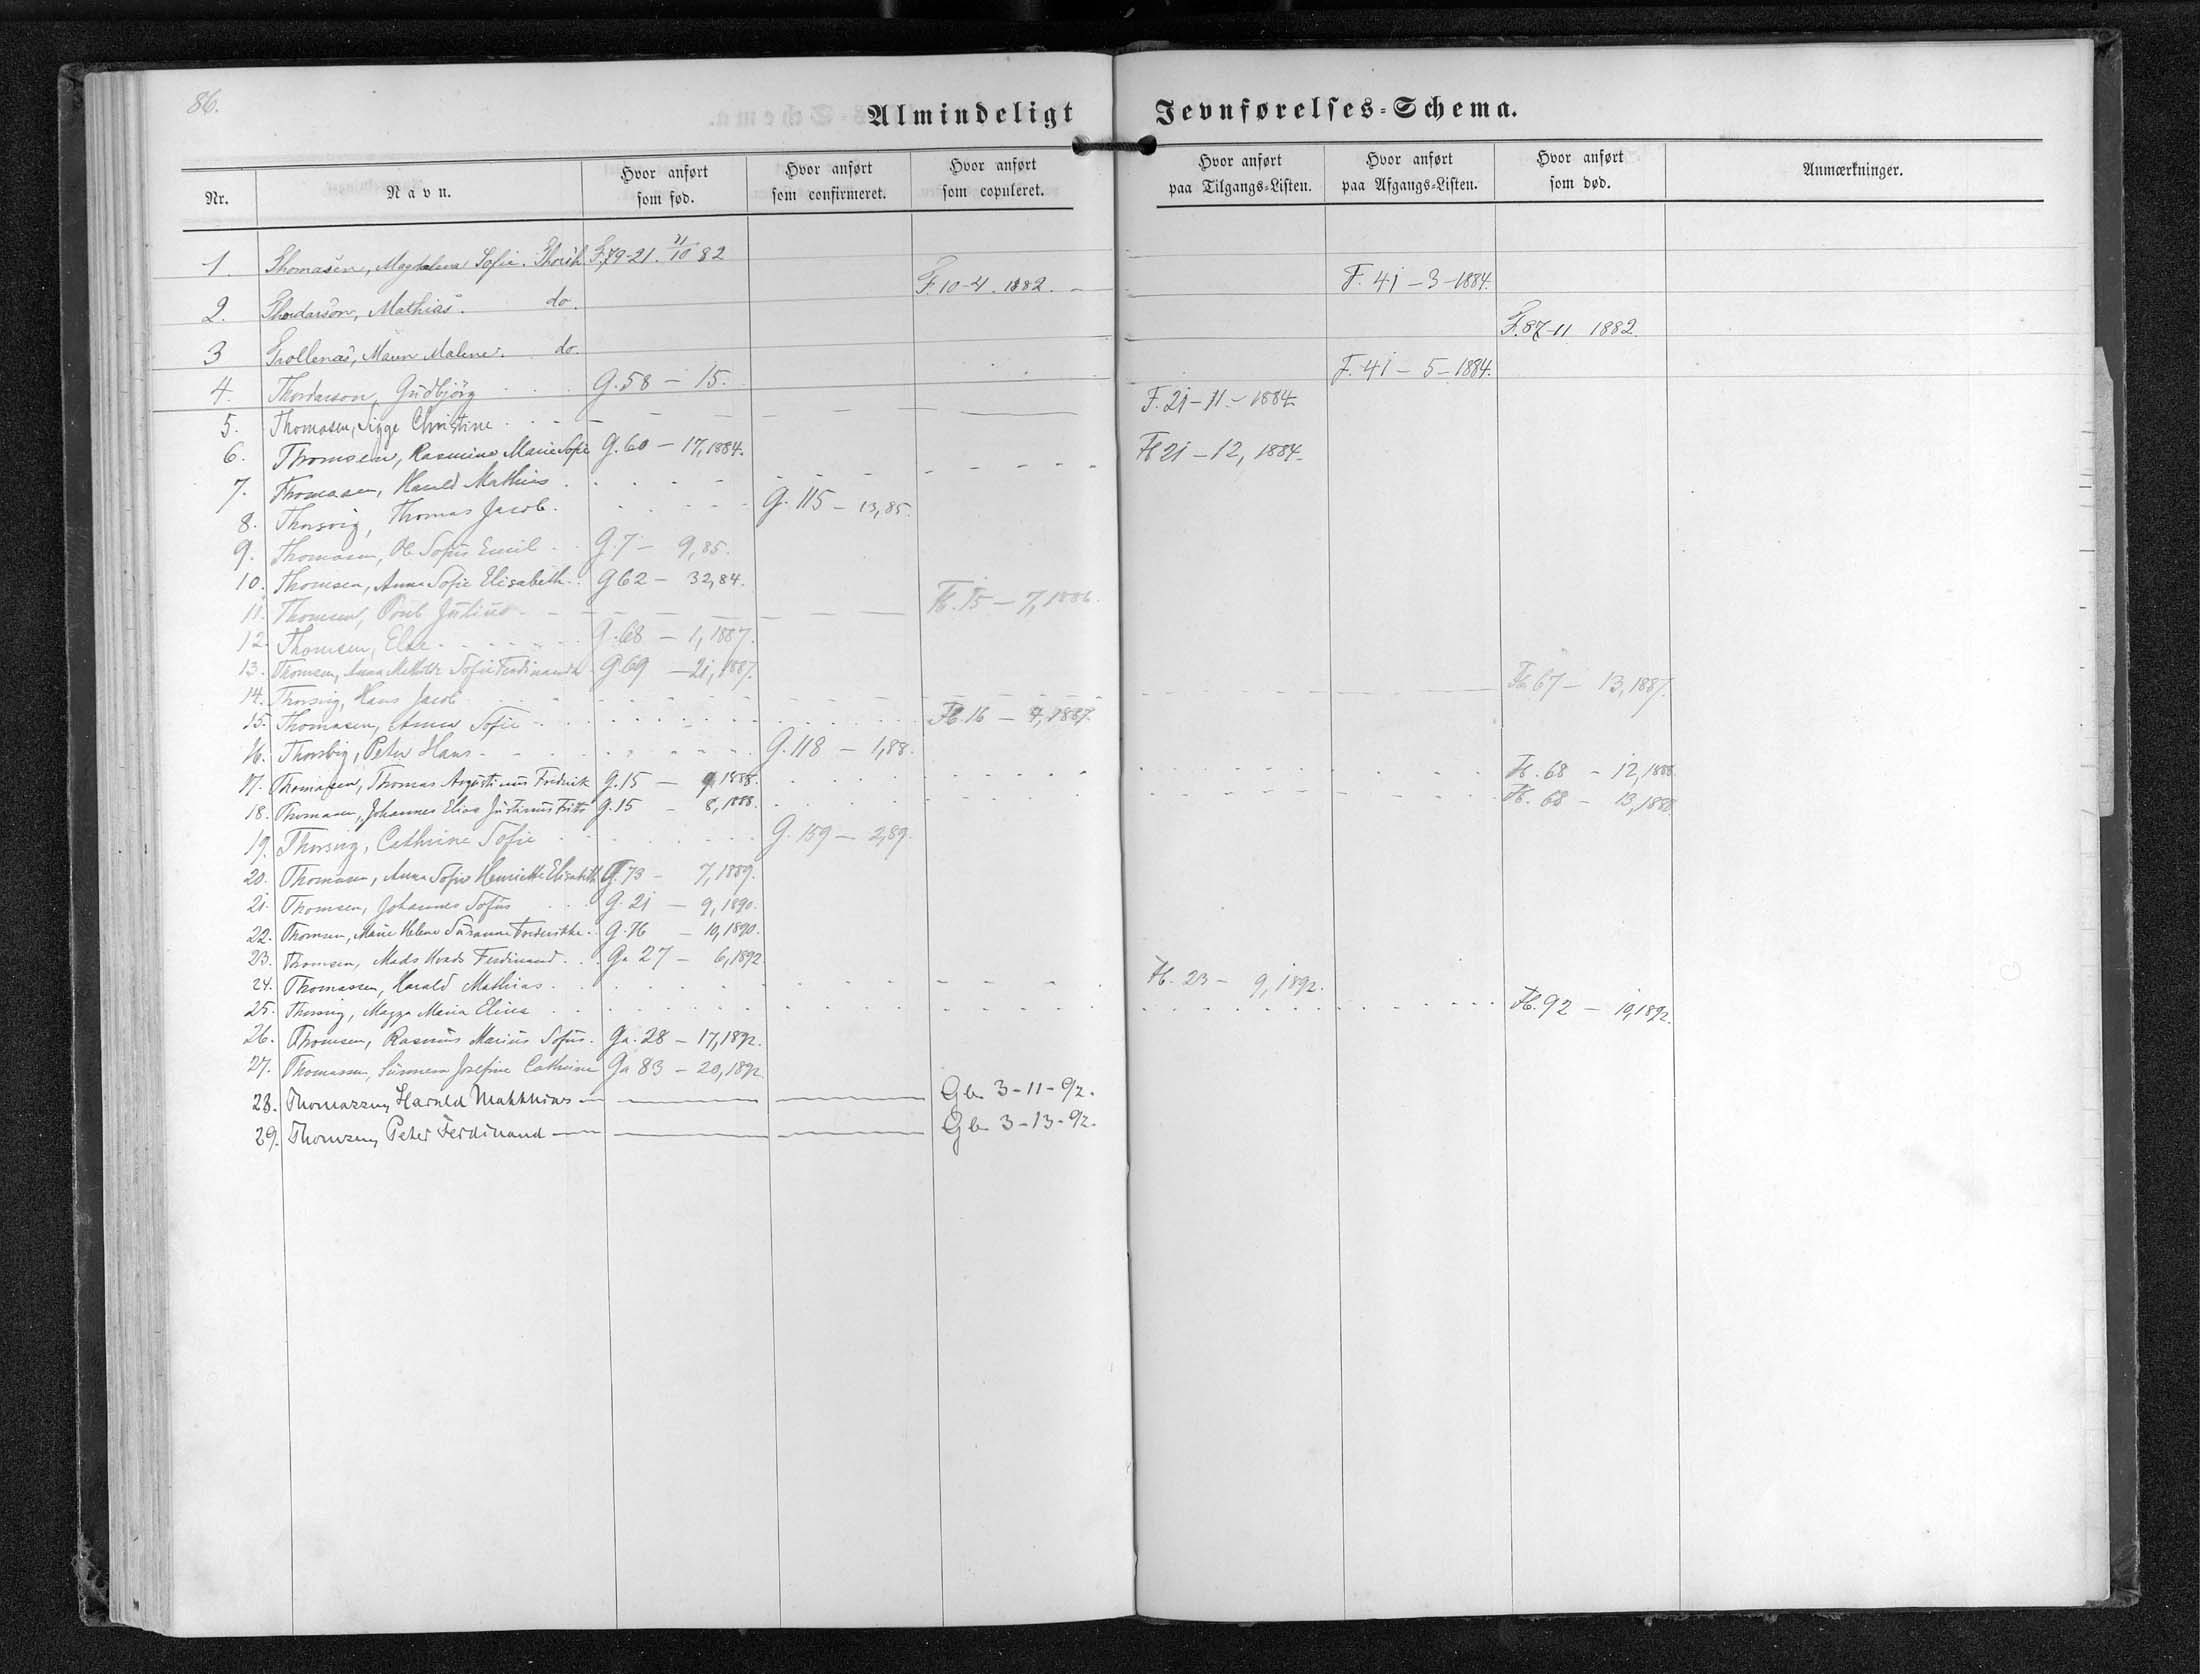 86.
Almindeligt Jevnførelses-Schema.
Nr. Navn. Hvor anført som fød. Hvor anført som confirmeret. Hvor anført som copuleret. Hvor anført paa Tilgangs-Listen. Hvor anført paa Afgangs-Listen. Hvor anført som død. Anmærkninger.
1. Thomasen, Magdalena Sofie. F. 79-21. 21/10 82
2. Thordarson, Mathias. do. F. 10-4. 1882. F. 41-3-1884.
3 Trollenas, Maren Malene. do. F. 87-11 1882.
4. Thordarson, Gudbjörg G. 58 - 15. F. 41-5-1884.
5. Thomasen, Sigge Christine F. 21-11-1884.
6. Thomsen, Rasmine Marie Sofie G. 60 - 17, 1884.
7. Thomasen, Harald Mathias Fb 21-12, 1884.
8. Thorsvig, Thomas Jacob. G. 115 - 13, 85.
9. Thomasen, Ole Sofus Emil G. 7 - 9, 85.
10. Thomsen, Anna Sofie Elisabeth G 62 - 32, 84.
11. Thomsen, Julius Fb. 15 - 7, 1886.
12. Thomsen, Else G. 68 - 1, 1887.
13. Thomsen, Anna Mathilde Sofie Ferdinanda G. 69 - 21, 1887.
14. Thorsvig, Hans Jacob Fb. 67 - 13, 1887.
15. Thomasen, Anna Sofie Fb. 16 - 4, 1887.
16. Thorsvig, Peter Hans G. 118 - 1, 88.
17. Thomasen, Thomas Augustinus Fredrik G. 15 - 9, 1888. Fb. 68 - 12, 1888.
18. Thomasen, Johannes Elias Justinus Fritz G. 15 - 8, 1888. Fb. 68 - 13, 1888.
19. Thorsvig, Cathrine Sofie G. 159 - 2, 89.
20. Thomasen, Anna Sofie Henriette Elisabeth G. 73 - 7, 1889.
21. Thomsen, Johannes Sofus G. 21 - 9, 1890.
22. Thomsen, Marie Helene Susanne Frederikke G. 76 - 10, 1890.
23. Thomsen, Mads Ferdinand Ga 27 - 6, 1892
24. Thomassen, Harald Mathias Fb. 23 - 9, 1892.
25. Thorsvig, Magga Maria Elina Fb. 92 - 19, 1892.
26. Thomsen, Rasmus Marius Sofus Ga. 28 - 17, 1892.
27. Thomassen, Sunneva Josefine Cathrine Ga 83 - 20, 1892
28. Thomassen, Harald Matthias Gb. 3-11-92.
29. Thomsen, Peter Ferdinand Gb. 3-13-92.